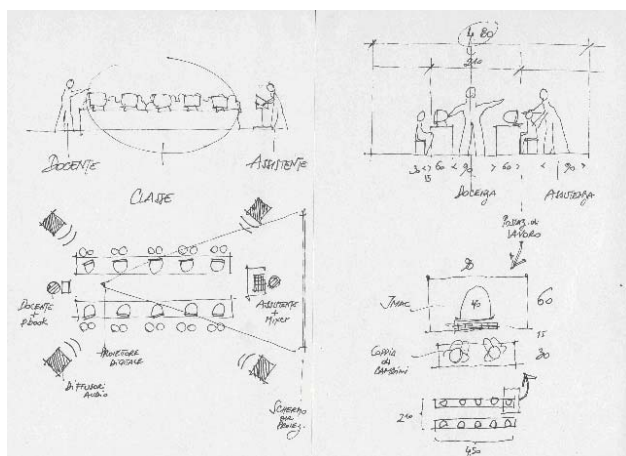 DOCENTE
ASSISTENTE
CLASSE
DOCENTE
+
PBOOK
ASSISTENTE
+
MIXER
PROIETTORE
DIGITALE
DIFFUSORI
AUDIO
SCHERMO
PER
PROIEZ.
4 80
210
30 <> 60 < 90 > 60 > < 90 >
15
DOCENZA
ASSISTENZA
POSTAZ. di
LAVORO
90
IMAC
40
60
15
COPPIA
di
BAMBINI
30
210
450